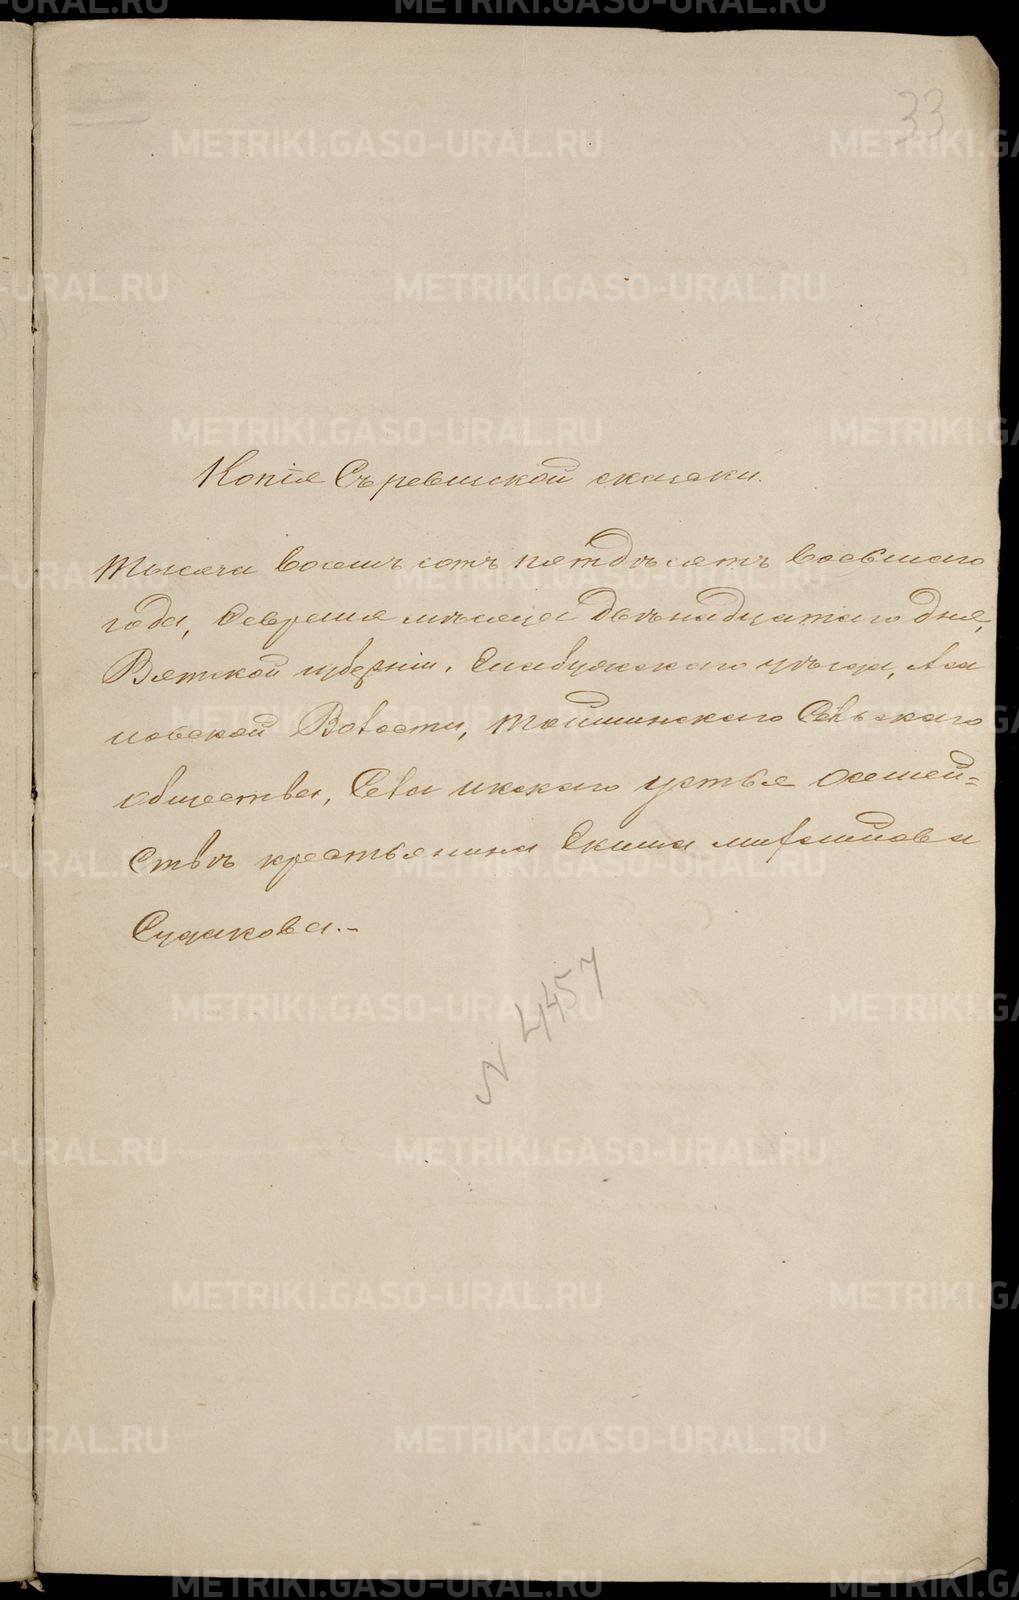 33
Копія Съ ревизской сказки.
Тысяча восемь сотъ пятдѣсятъ восьмаго
года, Февраля мѣсяца двѣнадцатаго дня,
Вятской губерніи. Елабужскаго уѣзда, Ага
новской Волости, Сельскаго
общества, Села икскаго устья о семей=
ствѣ крестьянина Екима
Судакова.-
N 4457
METRIKI.GASO-URAL.RU